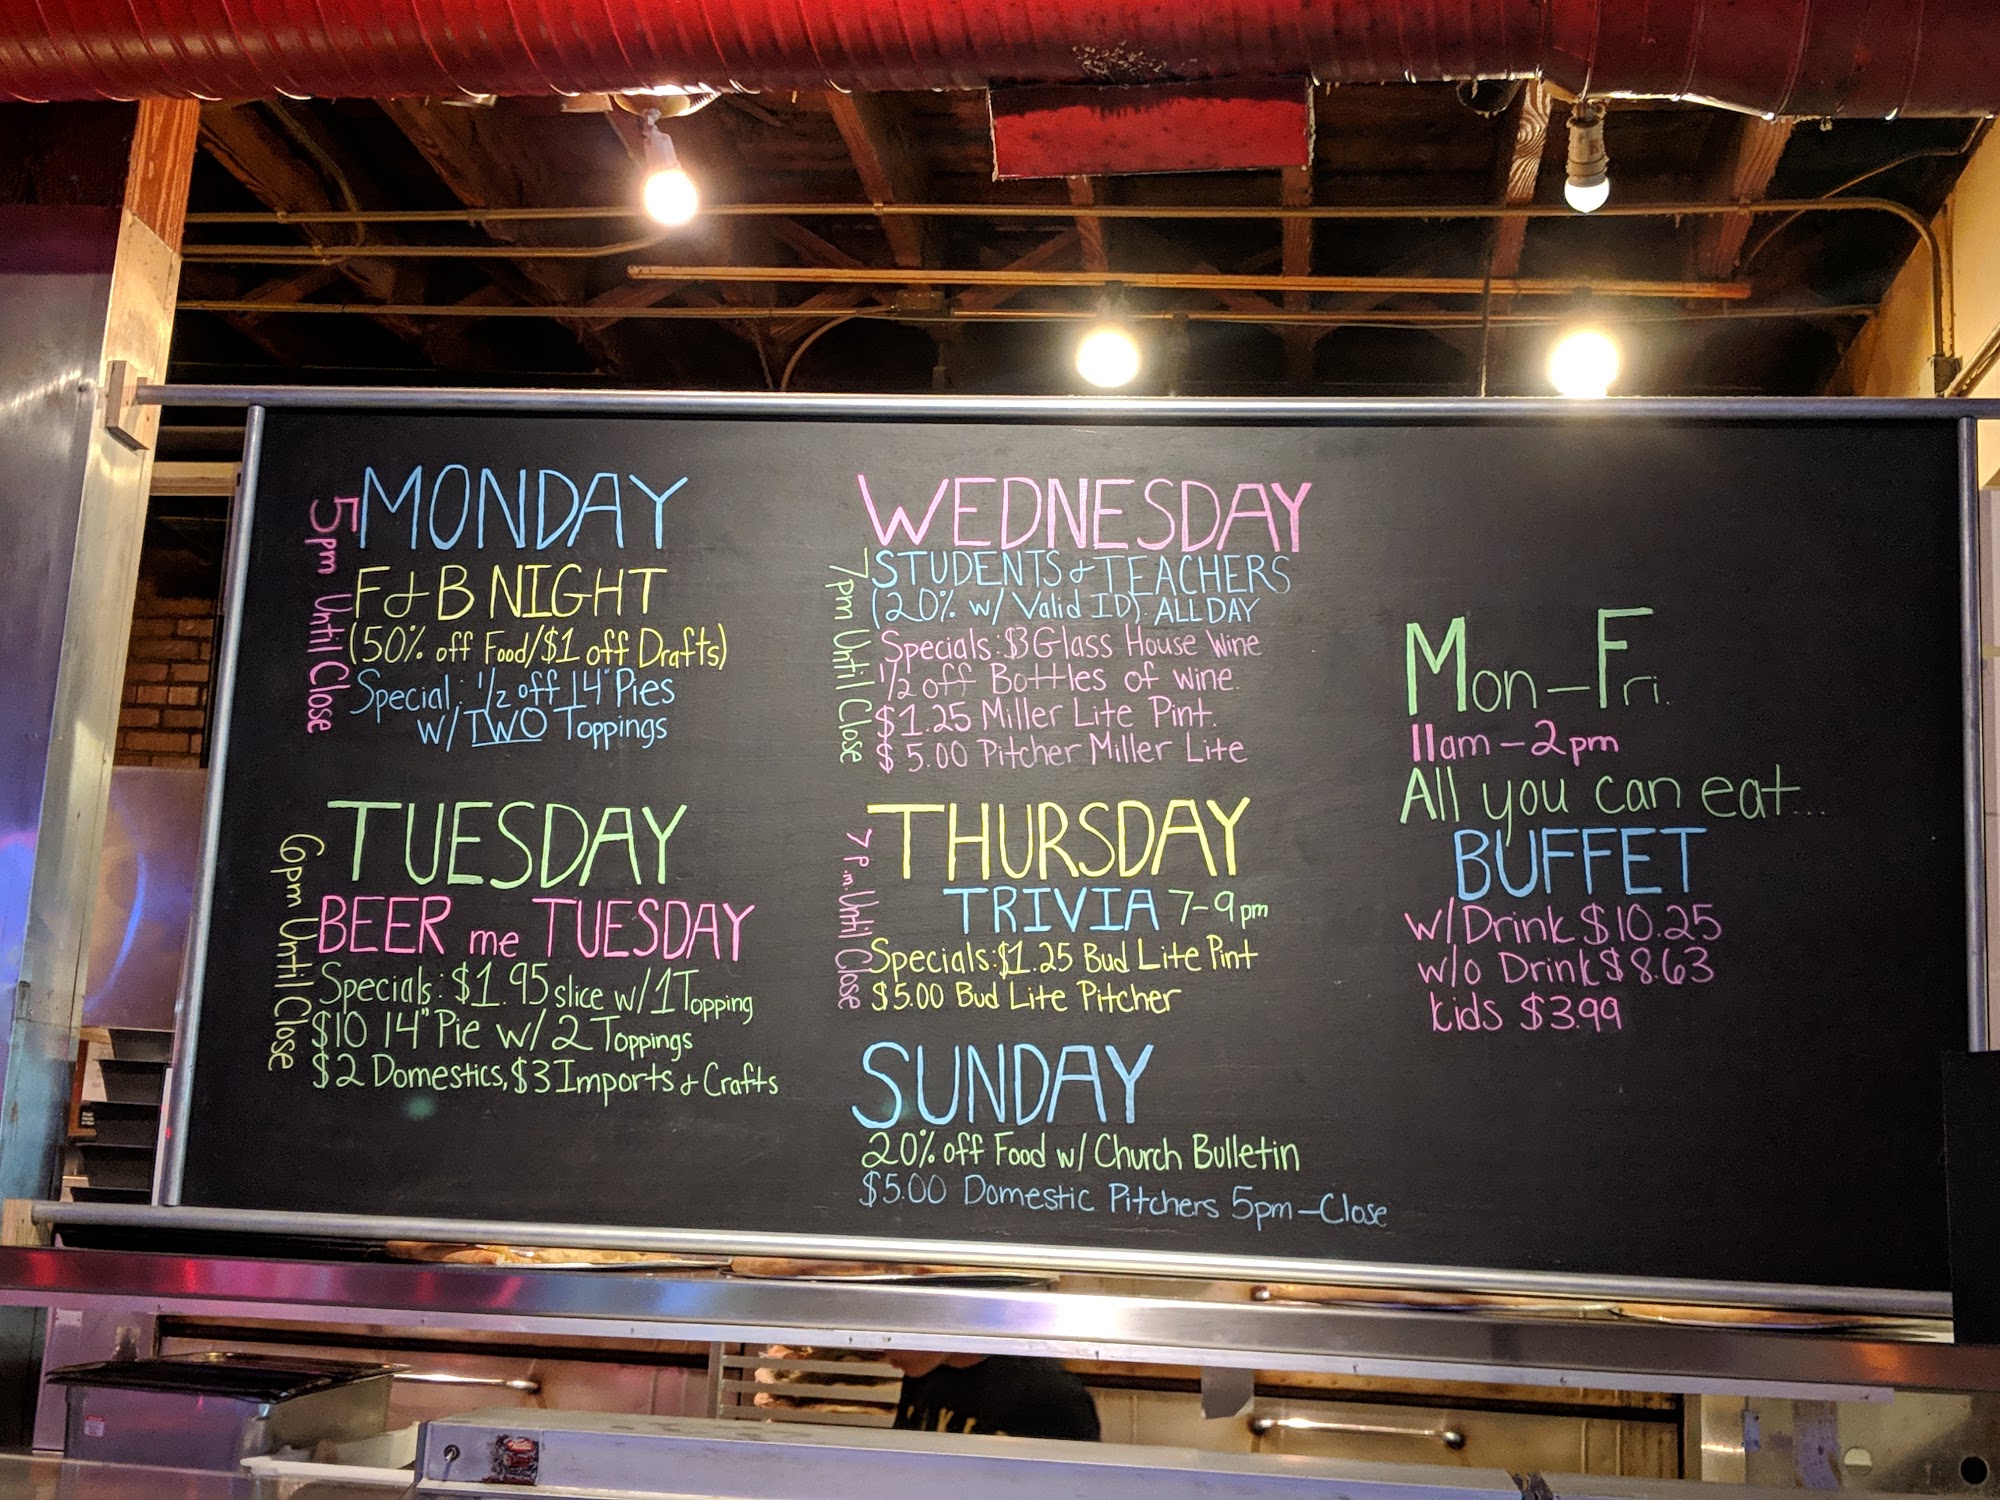 MONDAY
5pm Until Close
F & B NIGHT
(50% off Food/$1 off Drafts)
Special: 1/2 off 14" Pies
w/ TWO Toppings
TUESDAY
6pm Until Close
BEER me TUESDAY
Specials: $1.95 slice w/ 1 Topping
$10 14" Pie w/ 2 Toppings
$2 Domestics, $3 Imports & Crafts
WEDNESDAY
7pm Until Close
STUDENTS & TEACHERS
(20% w/ Valid ID) ALL DAY
Specials: $3 Glass House Wine
1/2 off Bottles of wine.
$1.25 Miller Lite Pint.
$5.00 Pitcher Miller Lite
THURSDAY
7 P.m. Until Close
TRIVIA 7-9pm
Specials: $1.25 Bud Lite Pint
$5.00 Bud Lite Pitcher
SUNDAY
20% off Food w/ Church Bulletin
$5.00 Domestic Pitchers 5pm-Close
Mon-Fri.
11am-2pm
All you can eat...
BUFFET
w/ Drink $10.25
w/o Drink $8.63
kids $3.99